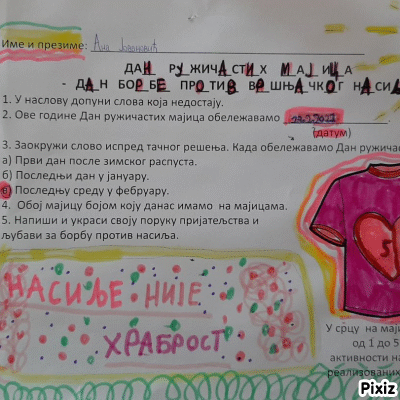 Име и презиме: Ана Јовановић
ДАН РУЖИЧАСТИХ МАЈИЦА
- ДАН БОРБЕ ПРОТИВ ВРШЊАЧКОГ НАСИ
1. У наслову допуни слова која недостају.
2. Ове године Дан ружичастих мајица обележавамо
(датум)
3. Заокружи слово испред тачног решења. Када обележавамо Дан ружичас
а) Први дан после зимског распуста.
б) Последњи дан у јануару.
в) Последњу среду у фебруару.
4. Обој мајицу бојом коју данас имамо на мајицама.
5. Напиши и украси своју поруку пријатељства и
љубави за борбу против насиља.
НАСИЉЕ НИЈЕ
ХРАБРОСТ
5
У срцу на мај
од 1 до 5
активности на
реализованих
Pixiz